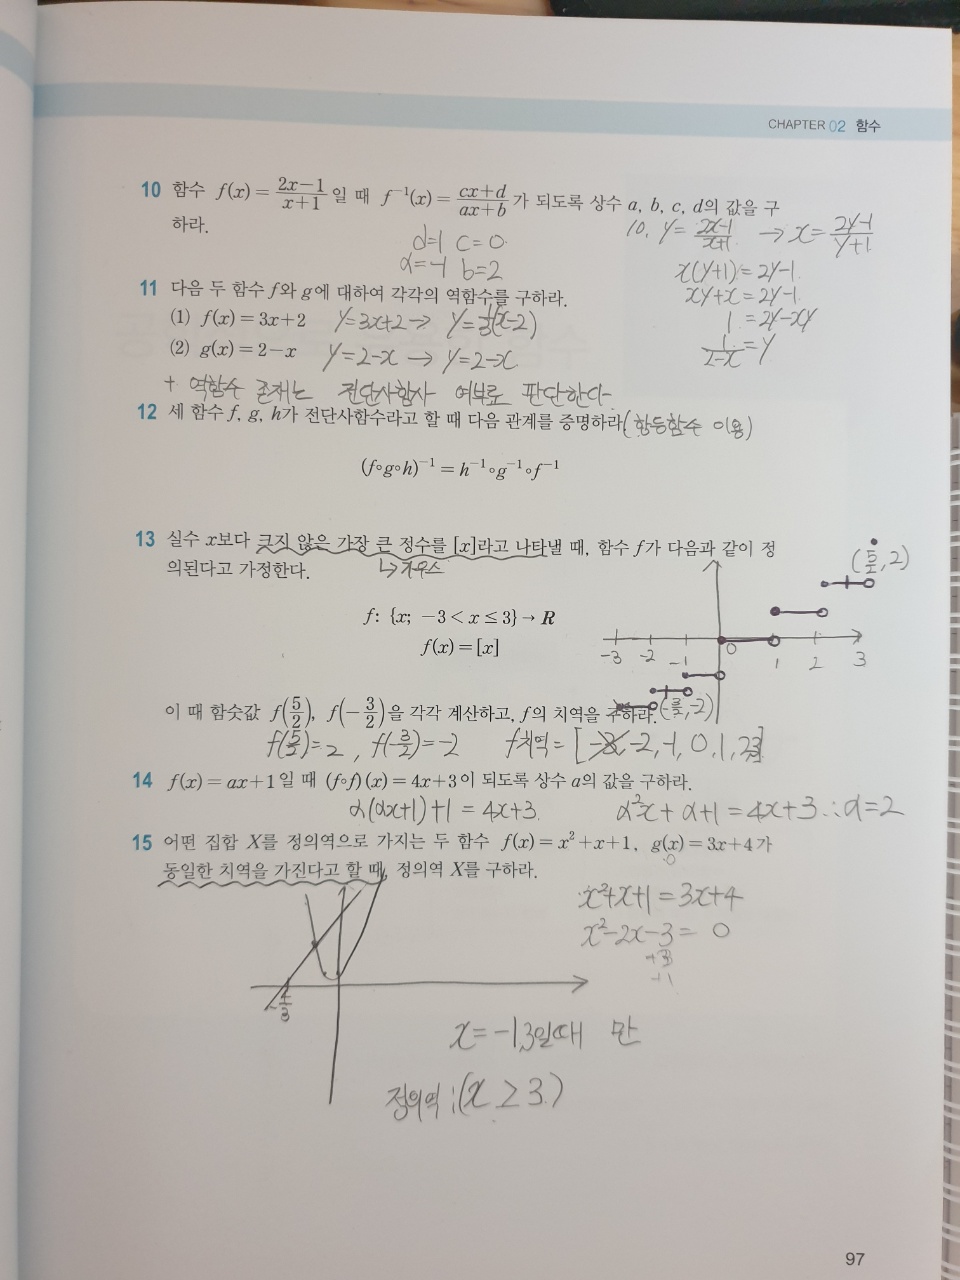 CHAPTER 02 함수
10 함수 f(x) = \frac{2x-1}{x+1} 일 때 f^{-1}(x) = \frac{cx+d}{ax+b} 가 되도록 상수 a, b, c, d의 값을 구
하라.
10. y = \frac{2x-1}{x+1} → x = \frac{2y-1}{y+1}
d=1 c=0
a=-1 b=2
x(y+1) = 2y-1
xy+x = 2y-1
1 = 2y-xy
\frac{1}{2-x} = y
11 다음 두 함수 f와 g에 대하여 각각의 역함수를 구하라.
(1) f(x) = 3x+2 y=3x+2 → y=\frac{1}{3}(x-2)
(2) g(x) = 2-x y=2-x → y=2-x
+ 역함수 존재는 전단사함사 여부로 판단한다-
12 세 함수 f, g, h가 전단사함수라고 할 때 다음 관계를 증명하라 (항등함수 이용)
(f∘g∘h)^{-1} = h^{-1}∘g^{-1}∘f^{-1}
13 실수 x보다 크지 않은 가장 큰 정수를 [x]라고 나타낼 때, 함수 f가 다음과 같이 정
의된다고 가정한다. ↳가우스
f: {x; -3 < x ≤ 3} → R
f(x) = [x]
(\frac{5}{2}, 2)
-3 -2 -1 0 1 2 3
이 때 함숫값 f(\frac{5}{2}), f(-\frac{3}{2})을 각각 계산하고, f의 치역을 구하라.
(-\frac{3}{2}, -2)
f(\frac{5}{2}) = 2, f(-\frac{3}{2}) = -2 f치역 = [-3, -2, -1, 0, 1, 2, 3]
14 f(x) = ax+1일 때 (f∘f)(x) = 4x+3이 되도록 상수 a의 값을 구하라.
a(ax+1)+1 = 4x+3 a²x+a+1 = 4x+3 ∴a=2
15 어떤 집합 X를 정의역으로 가지는 두 함수 f(x) = x²+x+1, g(x) = 3x+4가
동일한 치역을 가진다고 할 때, 정의역 X를 구하라.
x²+x+1 = 3x+4
x²-2x-3 = 0
-\frac{4}{3}
x = -1,3일때 만
정의역 : (x ≥ 3.)
97